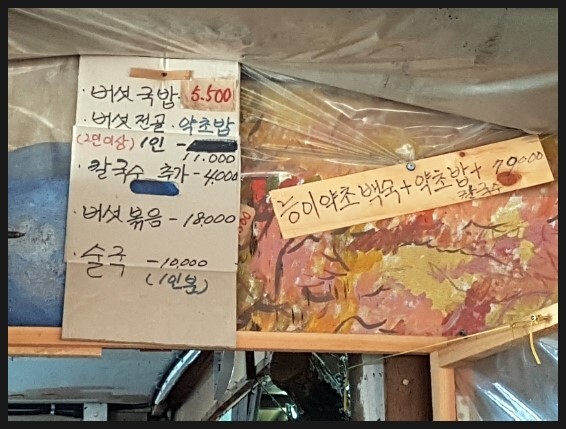 · 버섯 국밥 5.500
· 버섯 전골 · 약초밥
(2인이상) 1인 -
11.000
· 칼국수 추가 - 4.000
· 버섯 볶음 - 18000
· 술국 - 10,000
(1인분)
능이약초 백숙 + 약초밥 + 70000
칼국수